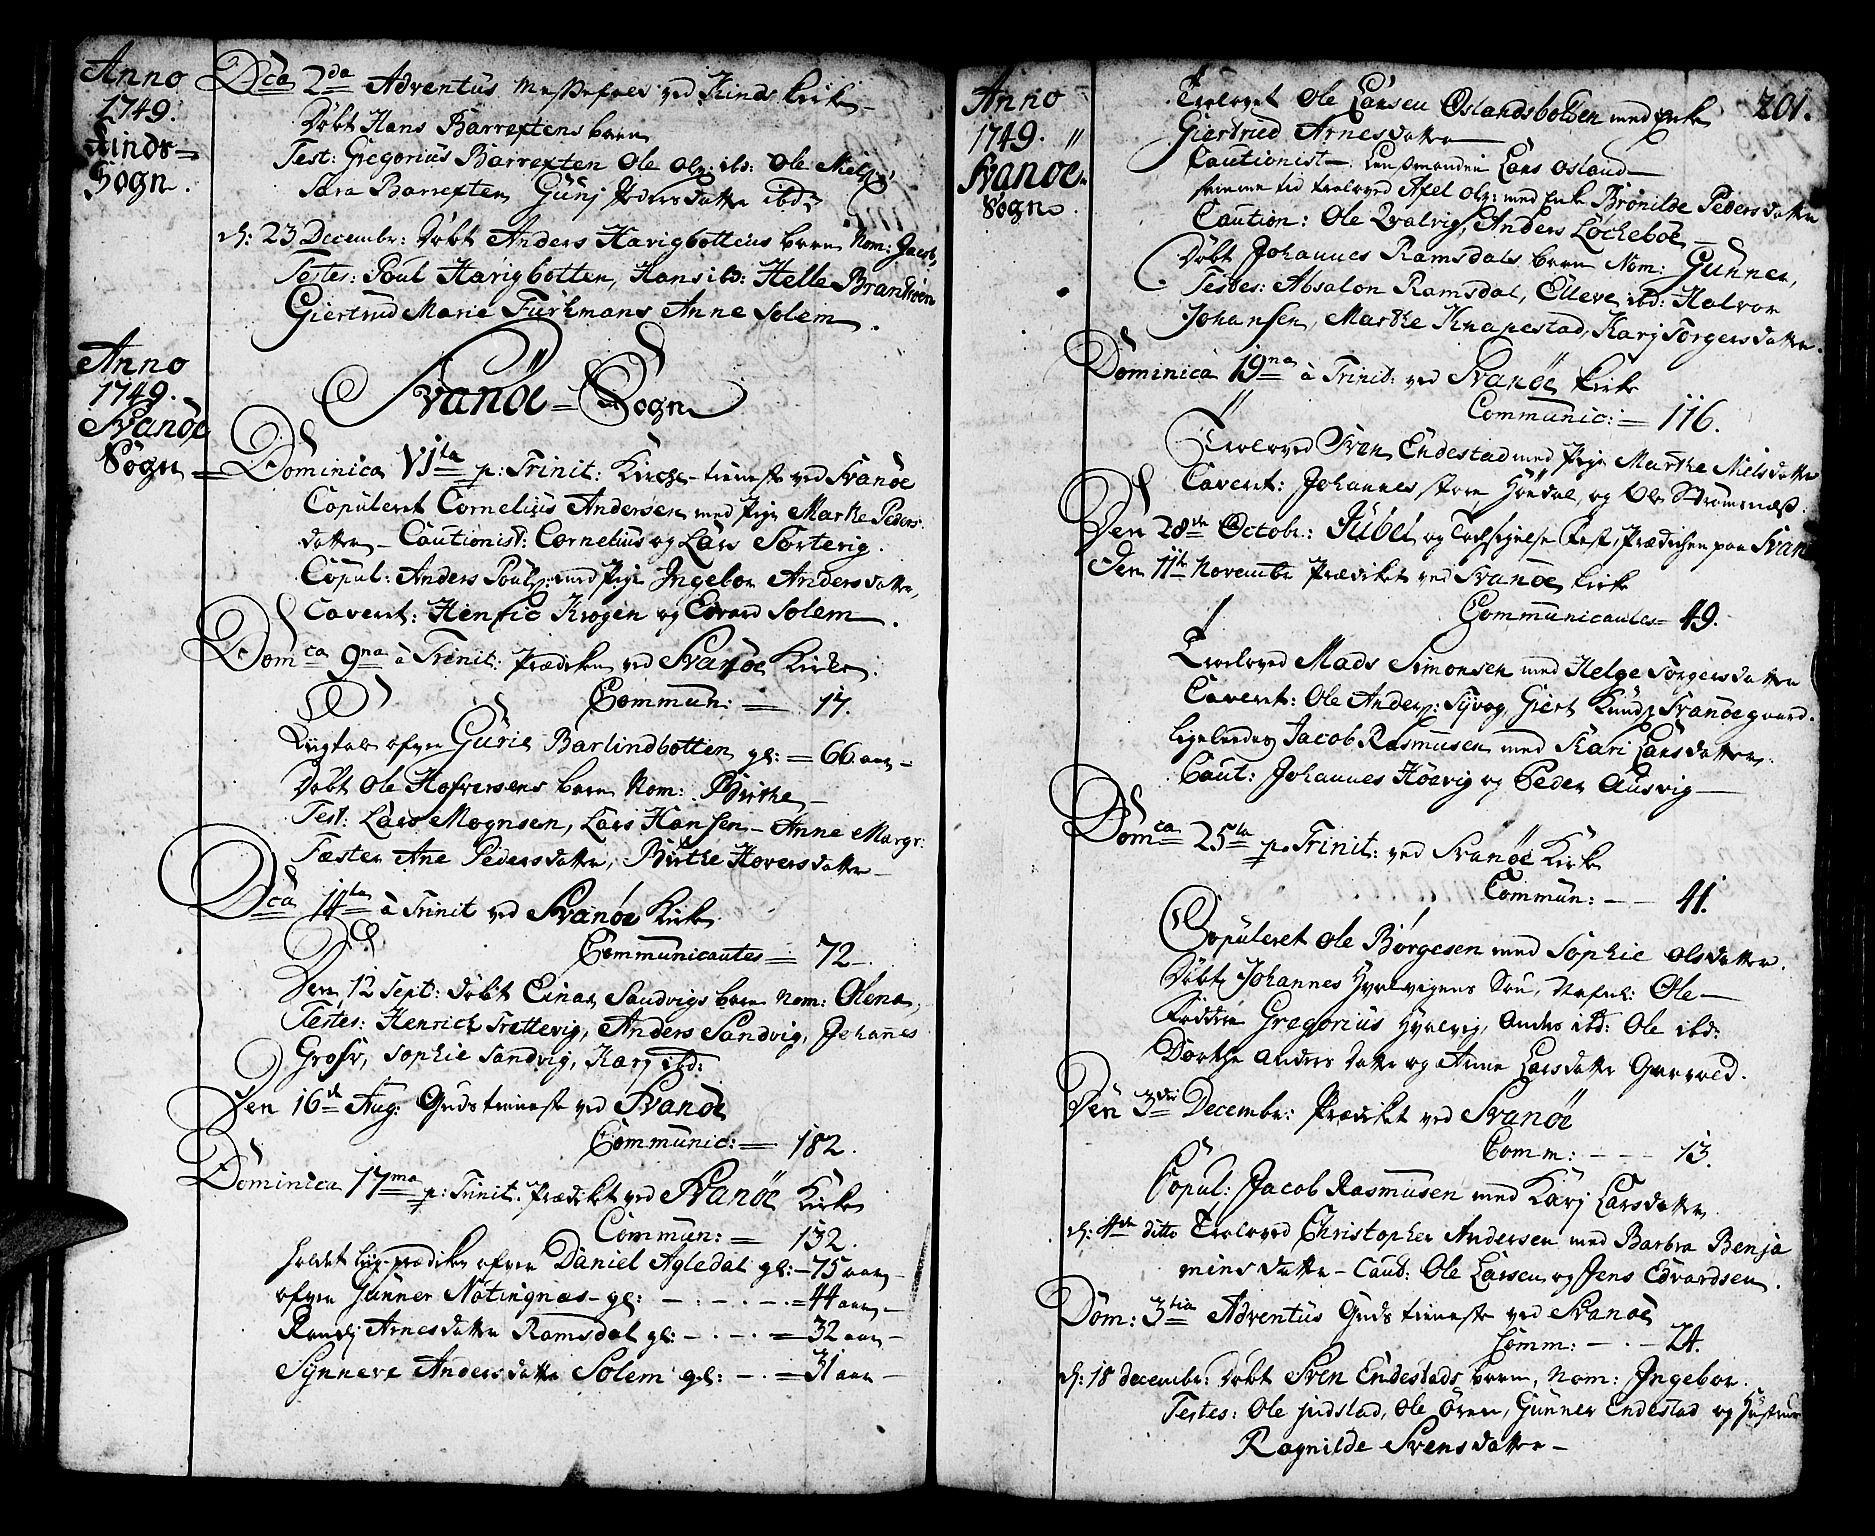 Anno
1749.
Kinds=
Sogn.
Dca 2da Adventus Messefald ved Kinds Kirke
Døbt Hans Barrextens barn
Test: Gregorius Barrexten Ole Ols: ibd: Ole
Sara Barrexten, Gunj Pedersdatter ibd:
d: 23 Decembr: Døbt Anders Havigbottens barn Nom: Jacob,
Testes: Poul Havigbotten, Hans ibd: Helle Brandsøen
Giertrud Marie Furkmans Anne Solem.
Anno
1749.
Svanøe
Sogn
Svanöe = Sogn
Dominica VIta p: Trinit: Kirche-tieneste ved Svanöe
Copuleret Cornelius Andersen med Pige Marthe Peders-
datter - Cautionist: Cornelius og Lars Sorterig.
Copul: Anders Pouls: med Pige Ingebor Andersdatter,
Caveret: Henric Krogen og Evard Solem.
Domca 9na à Trinit: Prædiken ved Svanöe Kirke.
Commun: = 17.
Liigtale ofver Guric Barlindbotten gl: = 66 aar -
Døbt Ole Hofversens barn Nom: Birthe -
Test: Lars Mognsen, Lars Hansen - Anne Margr:
Fæster Ane Pedersdatter, Birthe Hoversdatter -
Dca 14ta à Trinit ved Svanöe Kirke
Communicantes = 72 -
Den 12 Sept: døbt Einar Sandvigs barn Nom: Olena,
Testes: Henrich Trettevig, Anders Sandvig, Johanes
Grosv, Sophie Sandvig, Karj ibd:
Den 16de Aug: Guds tieneste ved Svanöe
Communic: = 182.
Dominica 17ma p: Trinit. Prædiket ved Svanöe Kirke
Commun: = 132.
holdet Liig-prædiken ofver Daniel Agledal gl: - 75 aar -
ofver Gunner Nøtingnæs gl: - . - . - = 44 aar -
Randj Arnesdatter Ramsdal gl: - . - = 32 aar -
Synneve Andersdatter Solem gl: - . = 31 aar -
Anno
1749. "
Svanöe
Sogn.
201.
Trolovet Ole Larsen Oslandsbotten med Enke
Giertrud Arnesdatter -
Cautionist - Lensmanden Lars Osland -
samme tid troloved Axel Ols: med Enke Brønilde Pedersdatter
Caution: Ole Qvalvig, Anders Løcheboe -
Døbt Johannes Ramsdals barn Nom: Gunner,
Testes: Absalon Ramsdal, Elleve ibd: Halvor
Johansen, Marthe Knapestad, Karj Torgersdatter.
Dominica 19na à Trinit: ved Svanöe Kirke
Communic: = 116.
Troloved Sven Endestad med Pige Marthe Nielsdatter
Caveret: Johannes store Høydal, og Ole Strømsnæs.
Den 28de Octobr: Jubel og Tachsigelse Fest, Prædichen paa Svan
Den 11te Novembr Prædiket ved Svanöe Kirke
Communicantes = 49.
Troloved Mads Simonsen med Helge Torgersdatter
Caveret: Ole Anders: Syvog, Giert Knuds: Svanöegaard.
ligeledes Jacob Rasmusen med Kari Larsdatter.
Caut: Johannes Høevig og Peder Ausvig -
Domca 25ta p. Trinit: ved Svanöe Kirke
Commun: - - 41.
Copuleret Ole Børgesen med Sophie Olsdatter.
Døbt Johannes Hvalvigens Søn, Nafnl: Ole -
Faddere Gregorius Hvalvig, Anders ibd: Ole ibd:
Dorthe Andersdatter og Anne Larsdatter
Den 3die Decembr: Prædiket ved Svanöe
Comm: - - - 13.
Copul: Jacob Rasmusen med Karj Larsdatter
d: 4de ditto Troloved Christopher Andersen med Barbra Benja
mins datter - Caut: Ole Larsen og Jens Edvardsen.
Dom: 3tia Adventus Guds tieneste ved Svanöe
Comm: - . - 24.
d: 18 decembr: Døbt Sven Endestads barn, Nom: Ingebor.
Testes: Ole Indstad, Ole Øren, Gunner Endestad og Hustrue
Ragnilde Svensdatter -